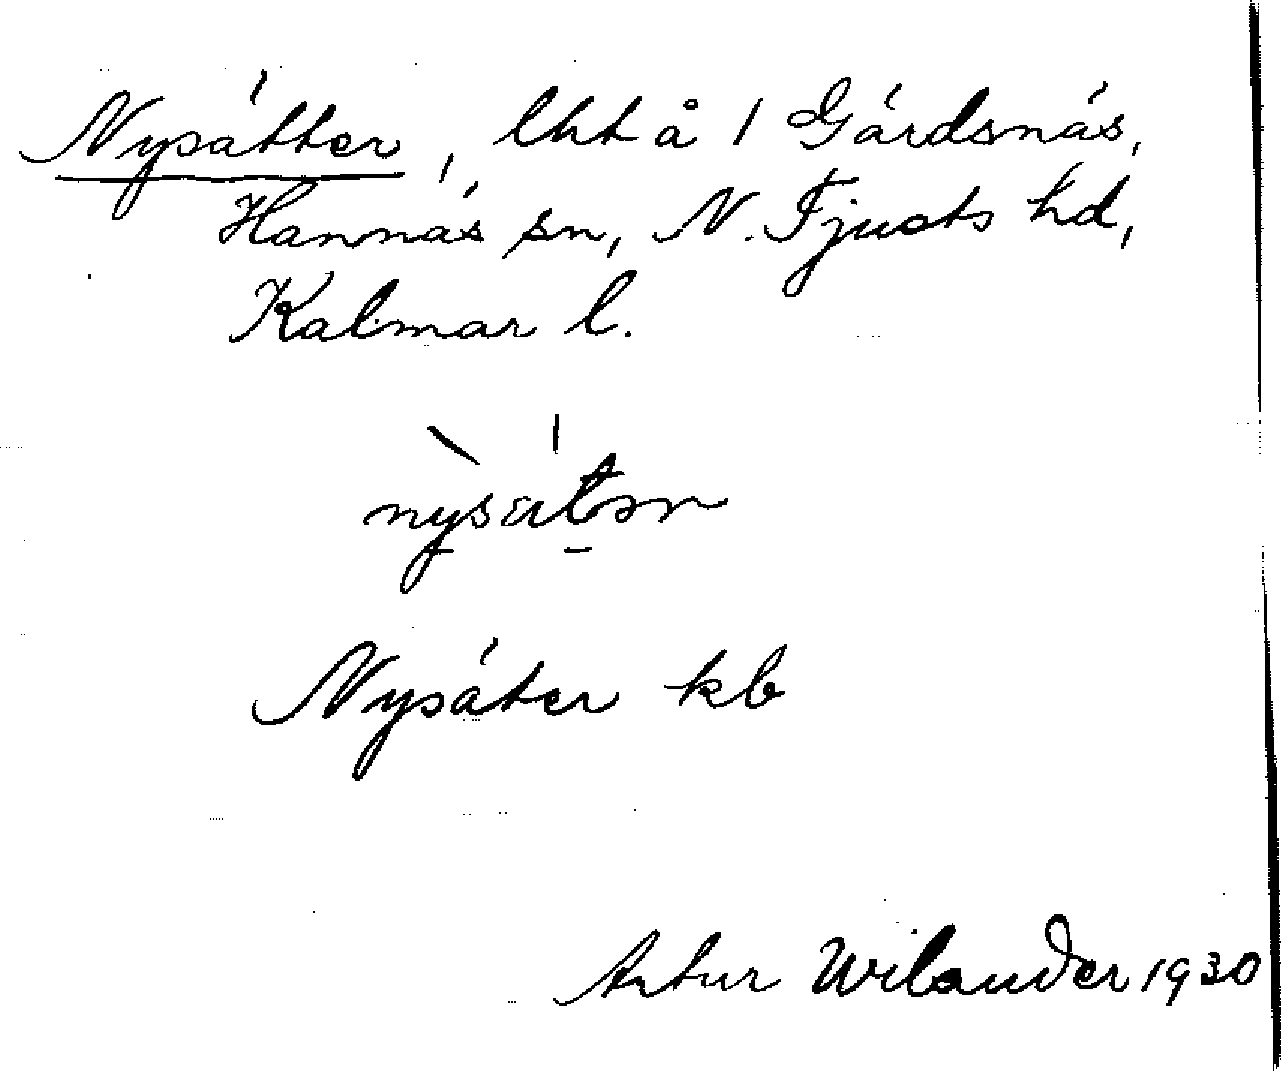 Nysätter, lht å 1 Gärdsnäs,
Hannäs sn, N. Tjusts hd,
Kalmar l.
nysätər
Nysäter kb
Artur Wilander 1930